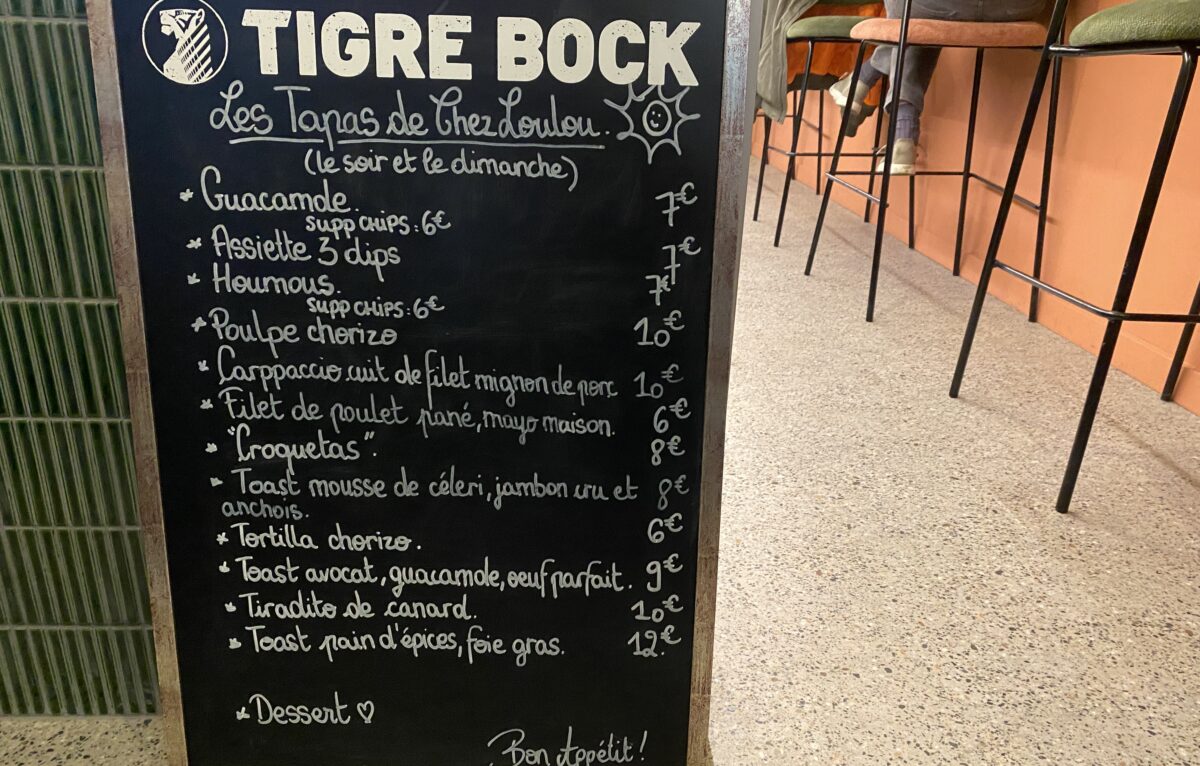 TIGRE BOCK
Les Tapas de Chez Loulou.
(le soir et le dimanche)
* Guacamole. 7€
SUPP CHIPS : 6€
* Assiette 3 dips 7€
* Houmous. 7€
SUPP CHIPS : 6€
* Poulpe chorizo 10€
* Carppaccio cuit de filet mignon de porc 10€
* Filet de poulet pané, mayo maison. 6€
* "Croquetas". 8€
* Toast mousse de céleri, jambon cru et 8€
anchois.
* Tortilla chorizo. 6€
* Toast avocat, guacamole, oeuf parfait. 9€
* Tiradito de canard. 10€
* Toast pain d'épices, foie gras. 12€
* Dessert ♡
Bon Appétit !